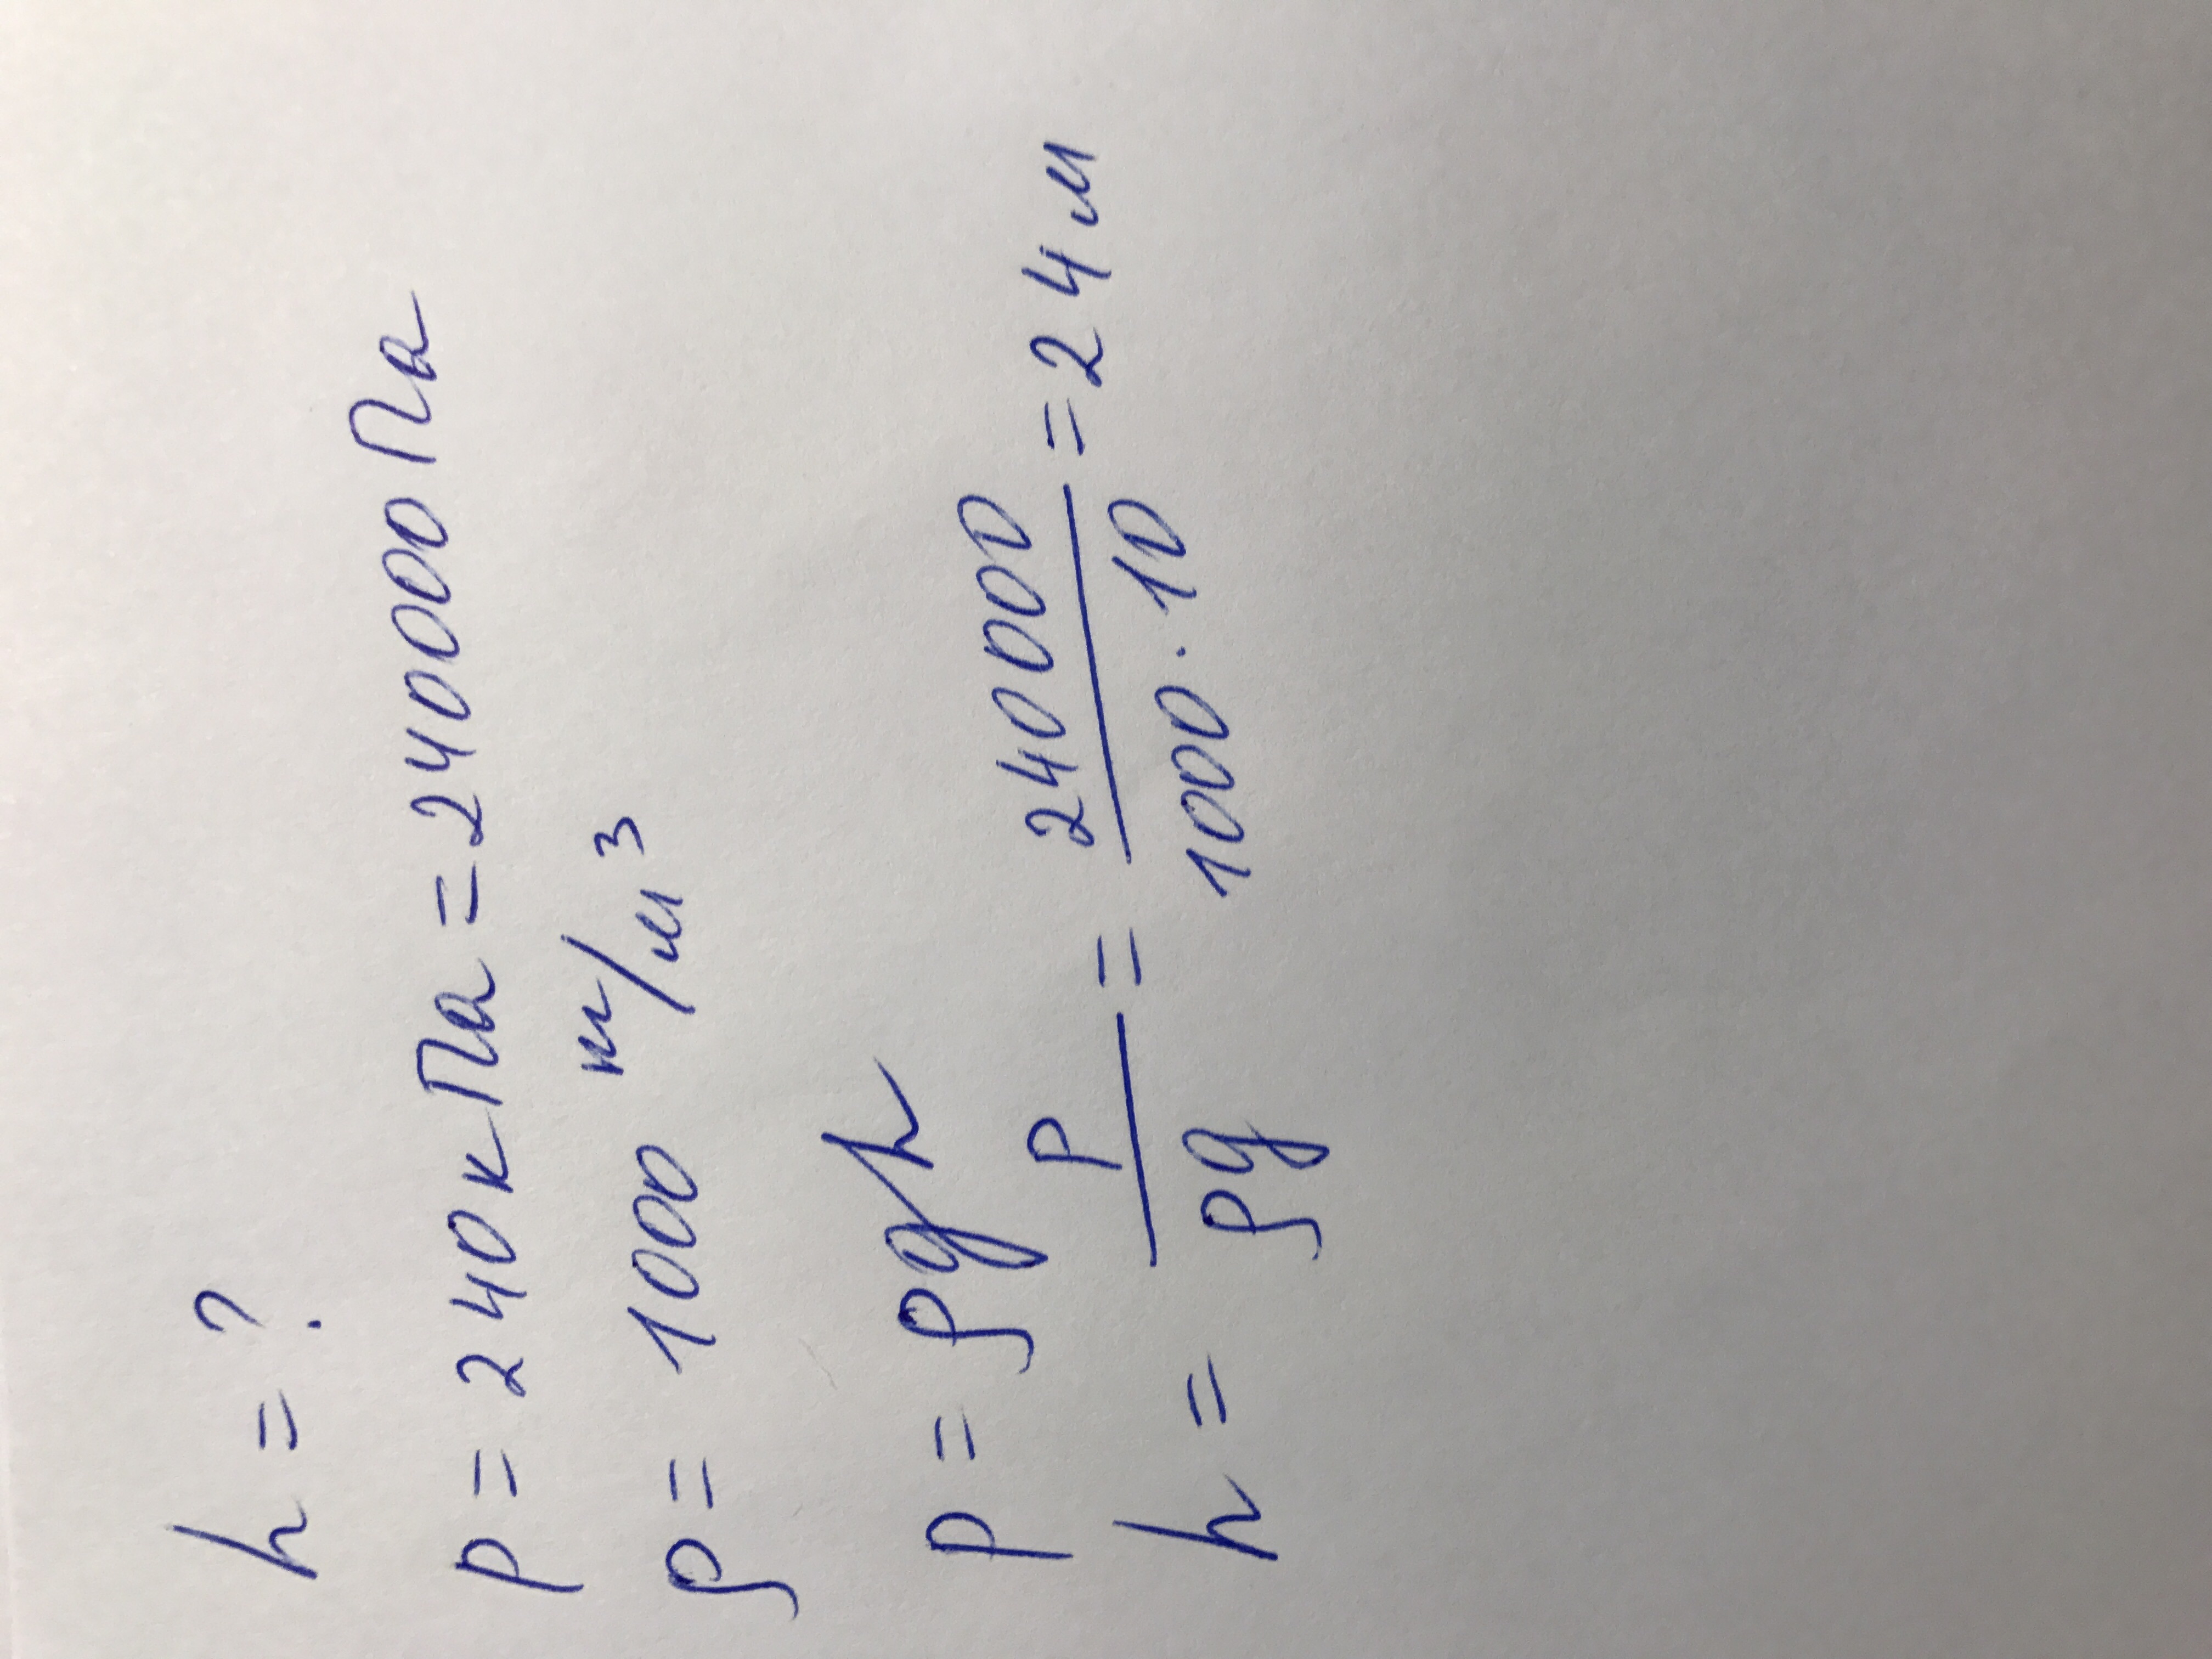 h = ?
P = 240 кПа = 240000 Па
ρ = 1000 кг/м³
P = ρgh
h = P/ρg = 240000/1000·10 = 24 м